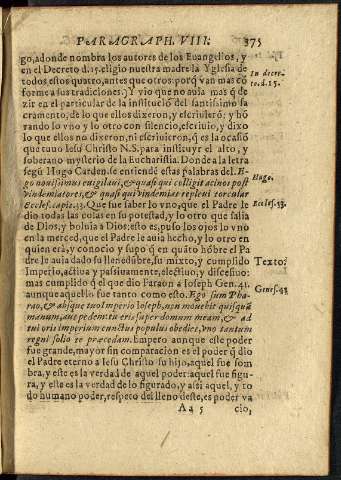 PARAGRAPH. VIII. 375
go, adonde nombra los autores de los Euangelios, y
en el Decreto d.15. eligio nuestra madre la Yglesia de
todos estos quatro, antes que otros: porq̃ van mas cõ
forme a sus tradiciones.) Y vio que no auia mas q̃ de
zir en el particular de la instituciõ del santissimo sa
cramento, de lo que ellos dixeron, y escriuierõ: y hõ
rando lo vno y lo otro con silencio, escriuio, y dixo
lo que ellos no dixeron, ni escriuieron, q̃ es la ocasiõ
que tuuo Iesu Christo N.S. para instituyr el alto, y
soberano mysterio de la Eucharistia. Donde a la letra
segũ Hugo Carden. se entiendẽ estas palabras del. E-
go nouissimus euigilaui, & quasi qui colligit acinos post
vindemiatores, & quasi qui vindemiat repleui torcular
Eccles. cap. 33. Que fue saber lo vno, que el Padre le
dio todas las cosas en su potestad, y lo otro que salia
de Dios, y boluia a Dios: esto es, puso los ojos lo vno
en la merced, que el Padre le auia hecho, y lo otro en
quien era, y conocio y supo q̃ en quãto hõbre el Pa
dre le auia dado su llenedũbre, su mixto, y cumplido
Imperio, actiua y passiuamente, electiuo, y
mas cumplido q̃ el que dio Faraon a Ioseph Gen. 41.
aunque aquello fue tanto como esto. Ego sum Pha-
rao, & absque tuo Imperio Ioseph, non mouebit quisquã
manum, aut pedem: tu eris super domum meam, & ad
tui oris imperium cunctus populus obediet, vno tantum
regni solio te præcedam. Empero aunque este poder
fue grande, mayor sin comparacion es el poder q̃ dio
el Padre eterno a Iesu Christo su hijo, aquel fue som
bra, y este es la verdad de aquel poder: aquel fue figu-
ra, y este es la verdad de lo figurado, y assi aquel, y to
do humano poder, respeto del lleno deste, es poder va
Aa 5 cio,
In decre-
to. d. 15.
Hugo.
Eccles. 33.
Texto.
Genes. 43.